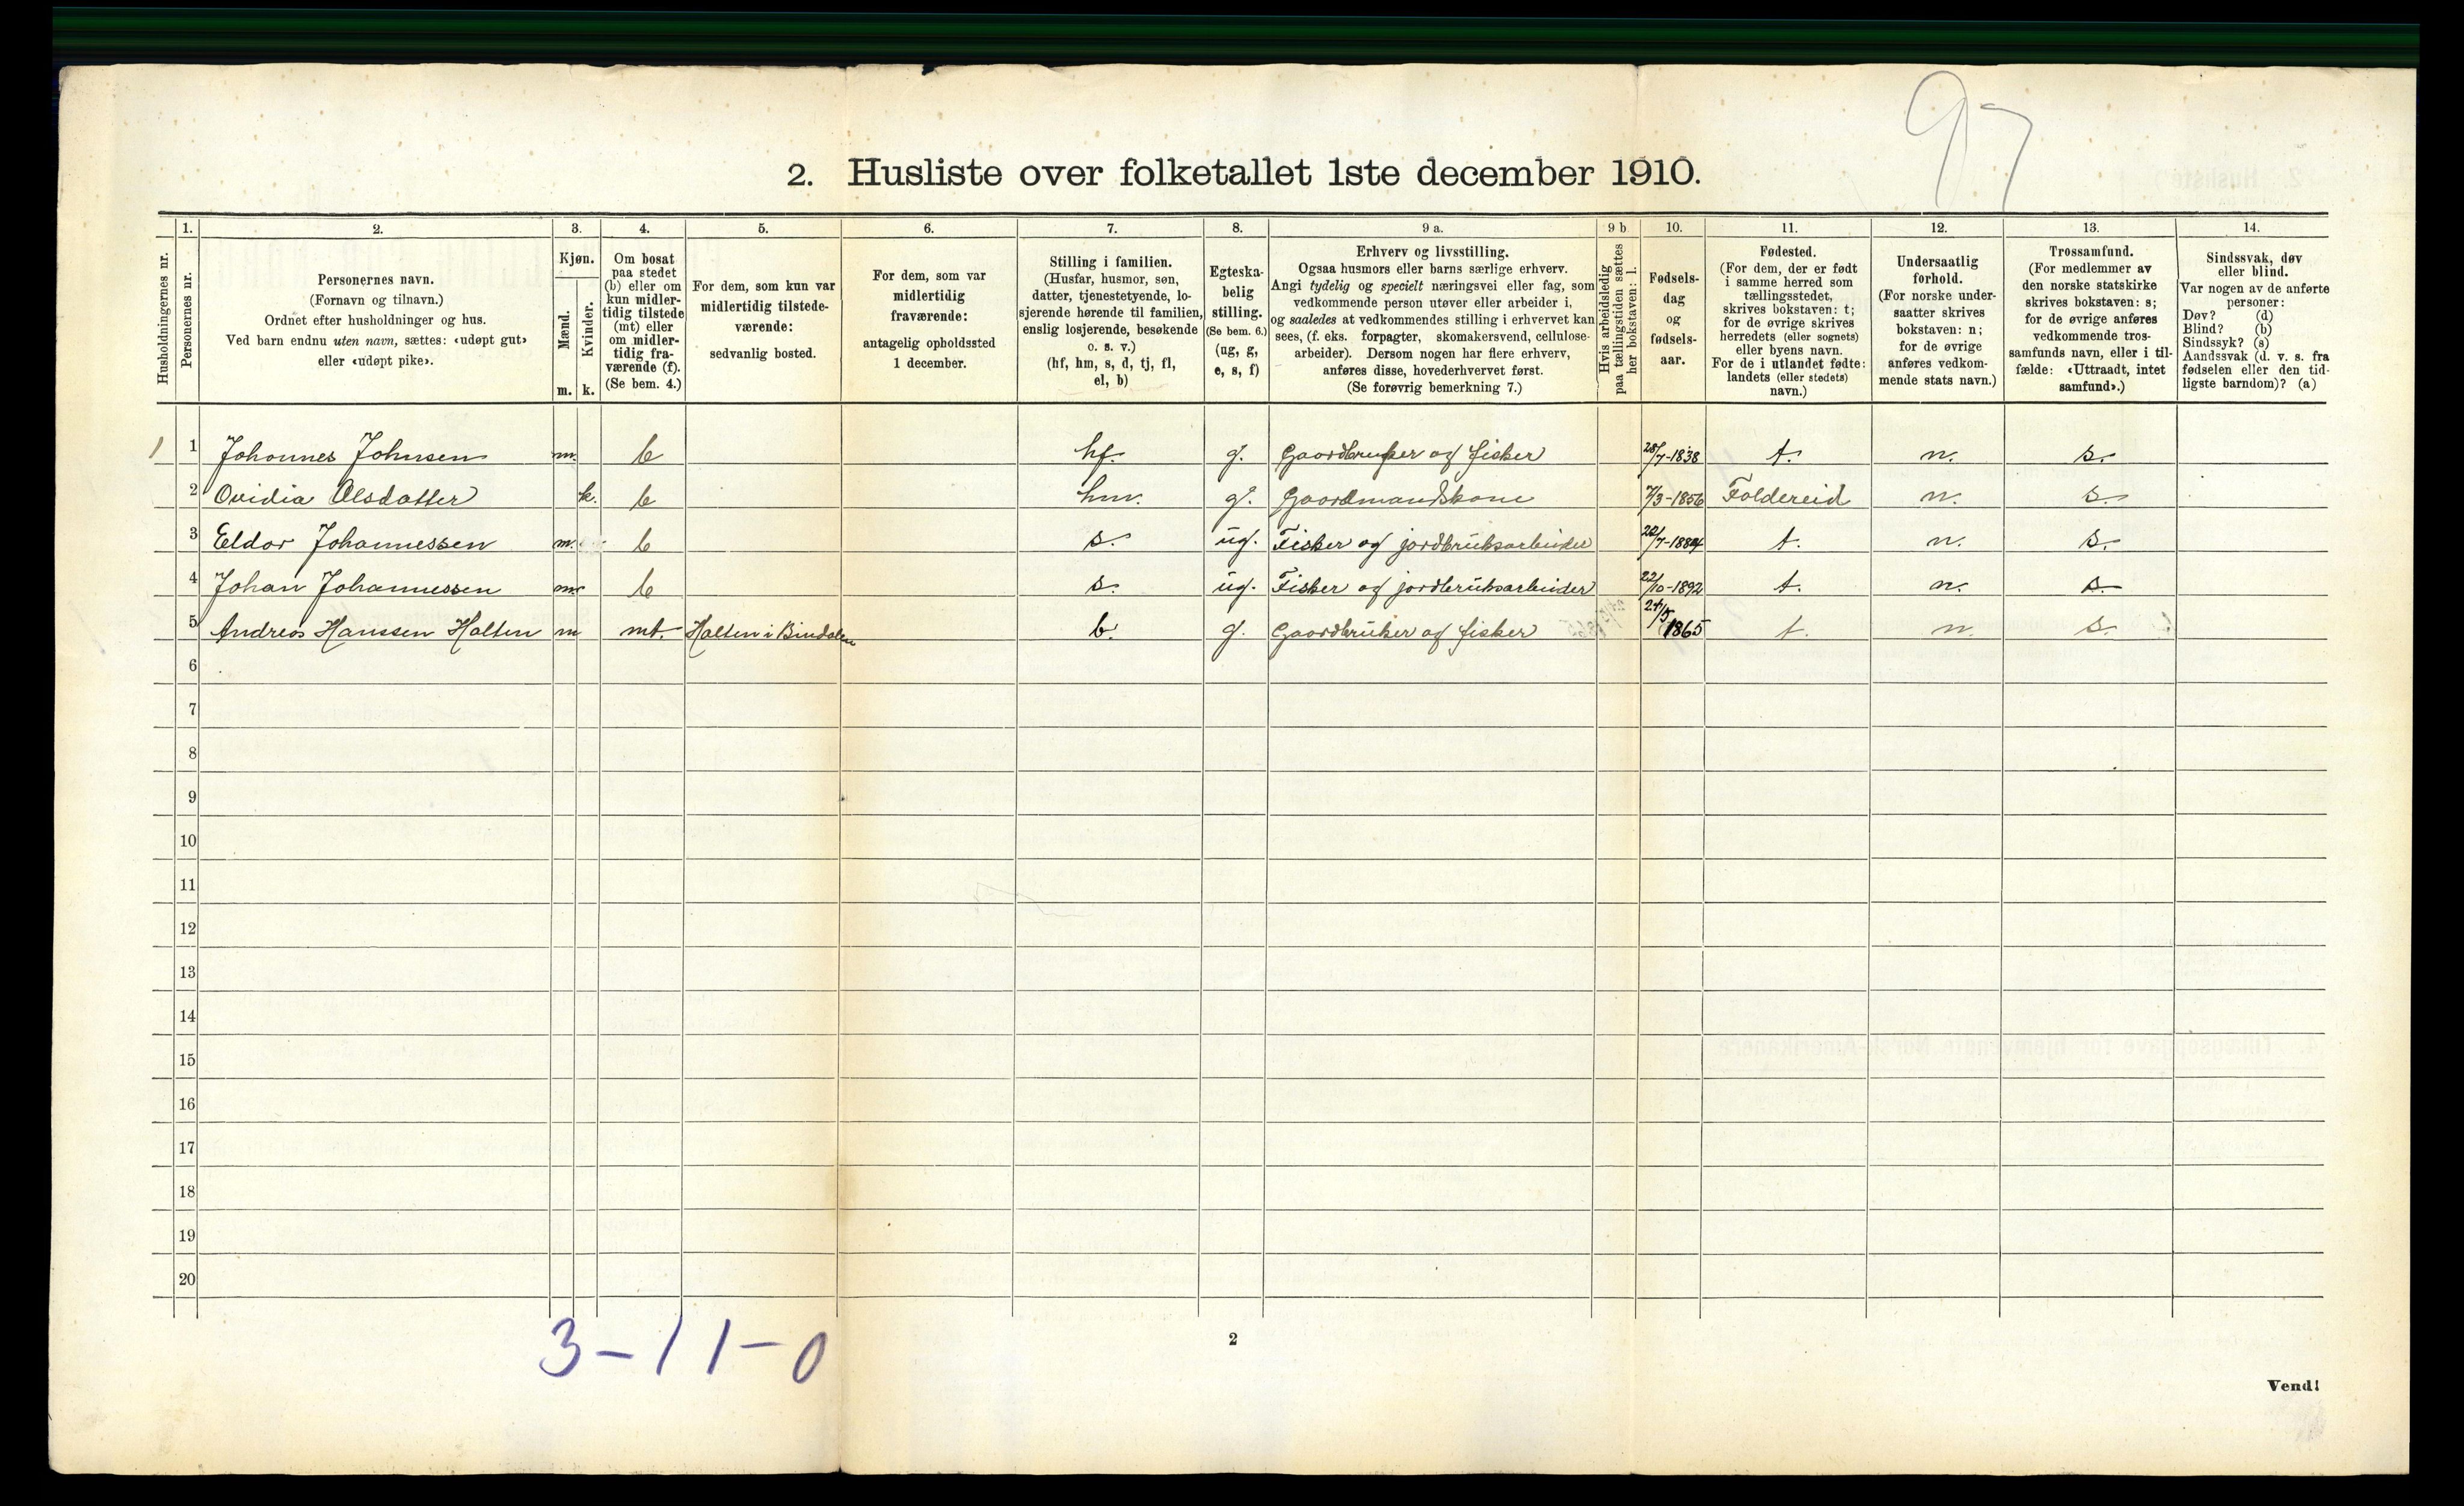 97
2. Husliste over folketallet 1ste december 1910.
Husholdningernes nr.
1.
Personernes nr.
2.
Personernes navn.
(Fornavn og tilnavn.)
Ordnet efter husholdninger og hus.
Ved barn endnu uten navn, sættes: «udøpt gut»
eller «udøpt pike».
3.
Kjøn.
Mænd.
m.
Kvinder.
k.
4.
Om bosat
paa stedet
(b) eller om
kun midler-
tidig tilstede
(mt) eller
om midler-
tidig fra-
værende (f).
(Se bem. 4.)
5.
For dem, som kun var
midlertidig tilstede-
værende:
sedvanlig bosted.
6.
For dem, som var
midlertidig
fraværende:
antagelig opholdssted
1 december.
7.
Stilling i familien.
(Husfar, husmor, søn,
datter, tjenestetyende, lo-
sjerende hørende til familien,
enslig losjerende, besøkende
o. s. v.)
(hf, hm, s, d, tj, fl,
el, b)
8.
Egteska-
belig
stilling.
(Se bem. 6.)
(ug, g,
e, s, f)
9 a.
Erhverv og livsstilling.
Ogsaa husmors eller barns særlige erhverv.
Angi tydelig og specielt næringsvei eller fag, som
vedkommende person utøver eller arbeider i,
og saaledes at vedkommendes stilling i erhvervet kan
sees, (f. eks. forpagter, skomakersvend, cellulose-
arbeider). Dersom nogen har flere erhverv,
anføres disse, hovederhvervet først.
(Se forøvrig bemerkning 7.)
9 b
Hvis arbeidsledig
paa tællingstiden sættes
her bokstaven: l.
10.
Fødsels-
dag
og
fødsels-
aar.
11.
Fødested.
(For dem, der er født
i samme herred som
tællingsstedet,
skrives bokstaven: t;
for de øvrige skrives
herredets (eller sognets)
eller byens navn.
For de i utlandet fødte:
landets (eller stedets)
navn.)
12.
Undersaatlig
forhold.
(For norske under-
saatter skrives
bokstaven: n;
for de øvrige
anføres vedkom-
mende stats navn.)
13.
Trossamfund.
(For medlemmer av
den norske statskirke
skrives bokstaven: s;
for de øvrige anføres
vedkommende tros-
samfunds navn, eller i til-
fælde: «Uttraadt, intet
samfund».)
14.
Sindssvak, døv
eller blind.
Var nogen av de anførte
personer:
Døv? (d)
Blind? (b)
Sindssyk? (s)
Aandssvak (d. v. s. fra
fødselen eller den tid-
ligste barndom)? (a)
1 1 Johannes Johnsen m. b hf. g. Gaardbruker og fisker 28/7-1838 t. n. s.
2 Ovidia Olsdatter k. b hm. g. Gaardmandskone 7/3-1856 Foldereid n. s.
3 Eldor Johannessen m. b s. ug. Fisker og jordbruksarbeider t. n. s.
4 Johan Johannessen m. b s. ug. Fisker og jordbruksarbeider 22/10-1892 t. n. s.
5 Andreas Hanssen Halten m mt. Halten i Bindalen b. g. Gaardbruker og fisker 1865 t. n. s.
6
7
8
9
10
11
12
13
14
15
16
17
18
19
20
3-11-0
2
Vend!